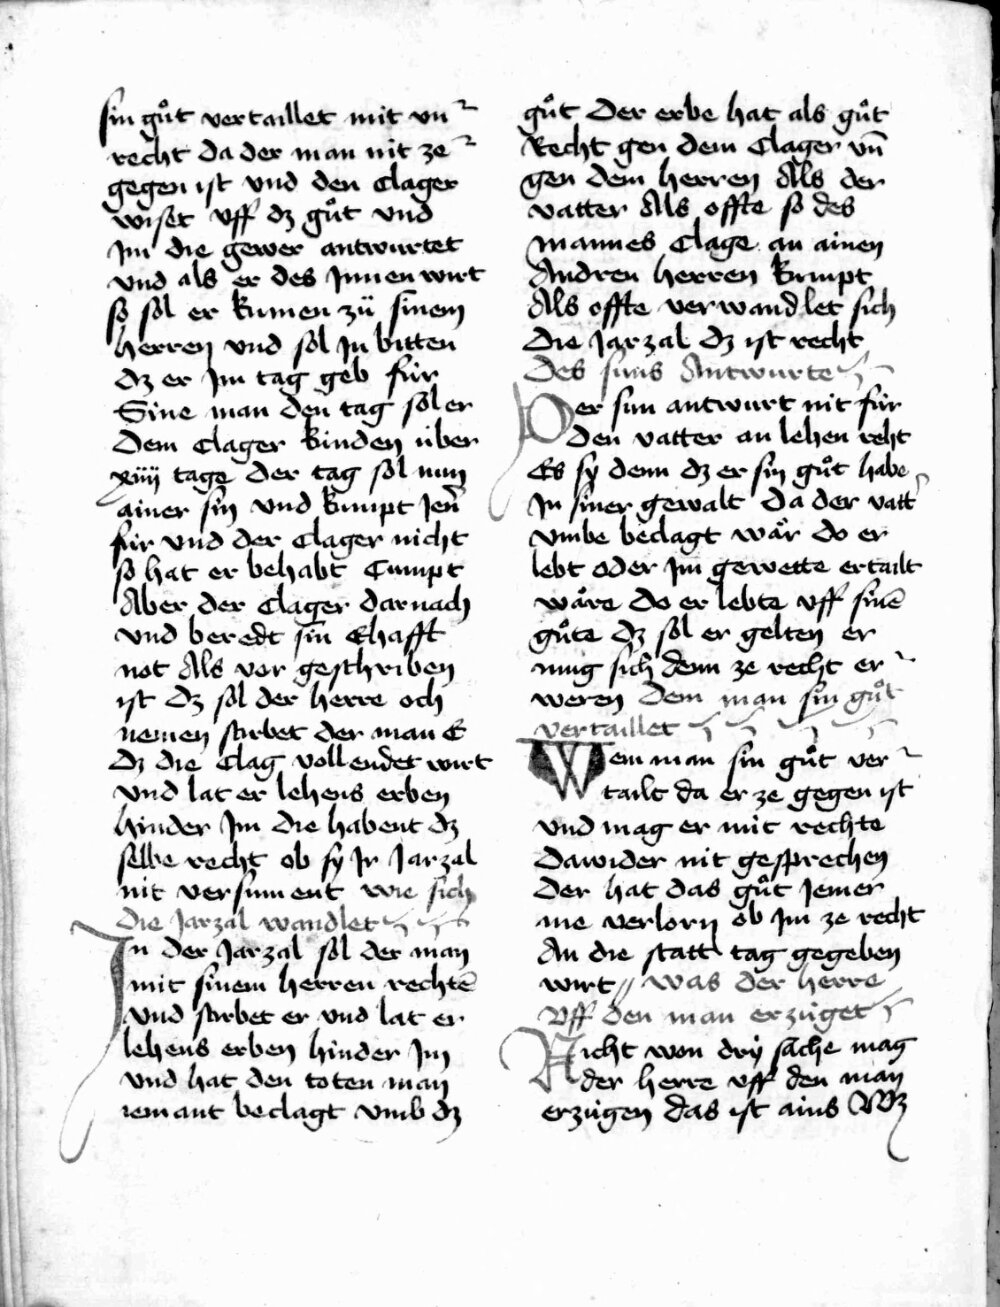 sin guͦt vertaillet mit vn˜
recht da der man nit ze˜
gegen ist vnd den Clager
wiset vff dz guͦt vnd
Im die gewer antwurtet
vnd als er des Innen wirt
so sol er kumen zü sinem
herren vnd sol In bitten
dz er Im tag geb für
Sine man den tag sol er
Dem Clager kinden über
xiiij tage der tag sol nun
ainer sin vnd kumpt Jen̄
für vnd der Clager nicht
so hat er behabt Cumpt
Aber der Clager darnach
vnd beredt sin Ehafft
not Als vor geschriben
ist dz sol der herre och
nemen stirbet der man E
dz die Clag vollendet wirt
vnd lat er lehens erben
hinder Im die habent dz
selbe recht ob sy Ir Jarzal
nit versument wie sich
die Jarzal wandlet
In der Jarzal sol der man
mit sinem herren rechtē
vnd stirbet er vnd lat er
lehens erben hinder Im
vnd hat den toten man
iemant beclagt vmb dz
guͦt Der erbe hat als guͦt
Recht gen dem Clager vn̄
gen dem herren Als der
vatter Als offte so des
mannes Clage an ainen
Andren herren kumpt
Als offte verwandlet sich
Die Jarzal dz ist recht
Des suns Antwurte
Der sun antwurt nit für
Den vatter an lehen reht
Es sy denn dz er sin guͦt habe
In siner gewalt Da der vatt˜
vmbe beclagt wär do er
lebt oder Im gewette ertailt
wäre Do er lebte vff sinē
guͦte dz sol er gelten er
mug sich denn ze recht er˜
weren Dem man sin guͦt
vertaillet
Wem man sin guͦt ver˜
tailt da er ze gegen ist
vnd mag er mit rechte
Dawider nit gesprechen
Der hat das guͦt Jemer
me verlorn ob Im ze recht
An die statt tag gegeben
wirt // was der herre
Vff den man erzüget
Nicht won dry sache mag
der herre vff den man
erzügen das ist ains Wz